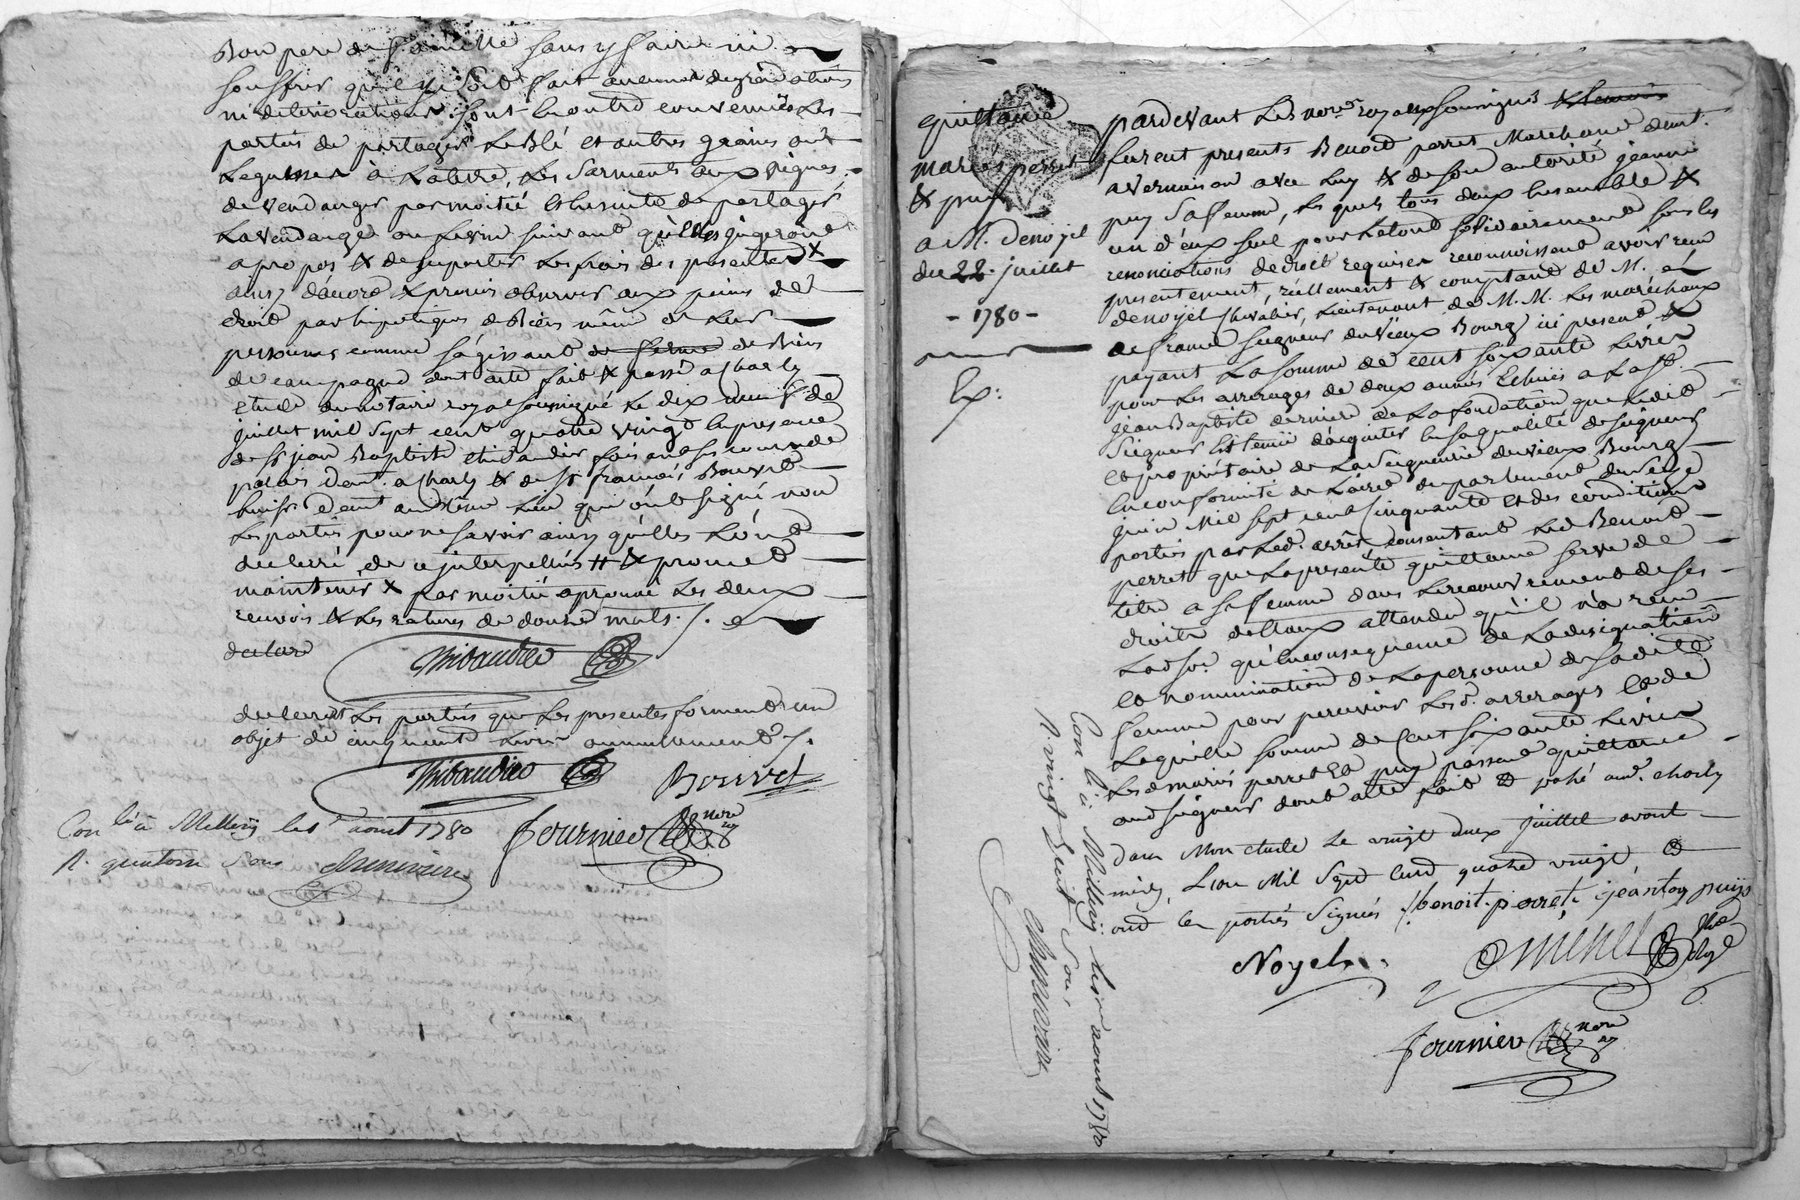 Bon pere de famille sans y faire ni
souffrir qu'il y soit fait aucunes degradations
ni deteriorations. sont en outre convenües les
parties de partager le Blé et autres grains et
Legumes à La livre, Les sarments aux vignes
de vendanger par moitié et ensuite de partager
La vendange ou Le vin suivant qu'elles jugeront
apropos & de suporter les frais des presentes X
ainsy d'acord & promis observer aux peines de
droit par hipoteques de Biens même de leurs
personnes comme s'agissant de ferme de Biens
de campagne dont acte fait & passé a Charly
etude du notaire royal soussigné Le dix neuf de
juillet mil sept cent quatre vingt en presence
de sr jean Baptiste thibaudier
palais demt. a Charly & de sr francois Bouvet
huissr. demt audit lieu qui ont signé non
Les parties pour ne savoir ainsy qu'elles L'ont
declaré de ce interpellées # & promet
maintenir X par moitié aprouvé Les deux
renvois & Les ratures de douze mots ./.
declaré
Thibaudier
declarent Les parties que Les presentes forment un
objet de cinquante Livres annuellement ./.
Thibaudier
Bouvet
Con.lé à Millery le 1r aoust 1780
Fournier nore
R. quatorze sous
quittance
mariés perret
& puy
a M. denoyel
du 22. juillet
- 1780 -
Ex:
pardevant Les nores. royaux soussignés & temoins
furent presents Benoit perret Marchand demt.
a vernaison avec Luy & de son autorité jeanne
puy Sa femme, Les quels tous deux ensemble &
un d'eux seul pour Le tout solidairement sous les
renonciations de droit requises reconnoissent avoir reçu
presentement, réellement & comptant de M.
denoyel Chevalier, Lieutenant de M. M. Les marechaux
de france seigneur du vieux Bourg ici present &
payant La somme de cent soixante Livres
pour Les arrerages de deux années Echuës a La St.
jean Baptiste derniere de La fondation que Ledit
Seigneur Est tenu d'acquiter en sa qualité de seigneur
et proprietaire de La Seigneurie du vieux Bourg
En conformité de L'arret du parlement du seize
juin Mil sept cent cinquante et des conditions
portées par Led. arrêt consentant Led Benoit
perret que La presente quittance serve de
titre a sa femme dans Le recouvrement de ses
droits dottaux attendu qu'il n'a reçu
Lad so. qu'en consequence de La designation
et nommination de La personne de Sadite
femme pour percevoir Lesd. arrerages et de
Laquelle somme de Cent soixante Livres
Les d mariés perret et puy passent quittance
aud seigneur dont acte fait & passé aud. charly
dans Mon etude Le vingt deux juillet avant
midy, L'an Mil Sept Cent quatre vingt, &
ont Les parties signés /. benoit. perret. jeantoy puy
Noyel
Fournier nore
Con.lé à Millery le 1r aoust 1780
R vingt huit sous